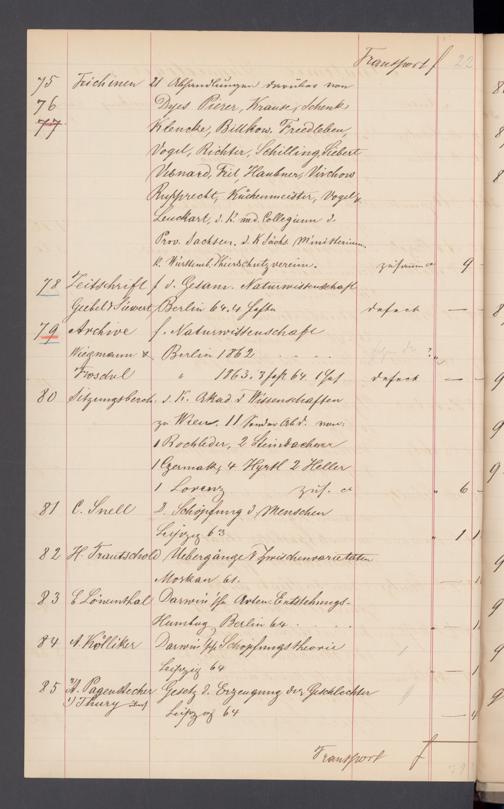 Transport f 22
75 Trichinen 21 Abhandlungen darüber von
76 Dyes Pierer, Krause, Schenk
77 Klencke, Billkow. Friedleben,
Vogel, Richter, Schilling, Siebert
Haubner, Virchow
Rupprecht, Küchenmeister, Vogel &
Leuckart, d. K. med. Collegium d.
Prov. Sachsen. d. K Sächs Ministerium.
k. Württemb. Thierschutzverein. zusammen 9 -
78 Zeitschrift f d. Gesam. Naturwissenschaft
Giebel & Siewert Berlin 64. 4 Hefte defect -
79 Archive f. Naturwissenschaft
Wiegmann & Berlin 1862
Troschel " 1863. 3 Heft 64 1 Heft defect -
80 Sitzungsberich. d. K. Akad d Wissenschaften
zu Wien. 11 von:
1 Rochleder, 2 Steindachner
1 Czermak, 4 Hyrtl 2 Heller
1 Lorenz zus. " 6 -
81 C. Snell D. Schöpfung d. Menschen
Leipzig 63 " 1 1
82 H Trautschold Uebergänge & Zwischenvarietäten
Moskau 61. - 1
83 E Löwenthal Darwin u. Arten Entstehungs-
Humbug, Berlin 64 - 1
84 A. Kölliker Darwin Schöpfungstheorie
Leipzig 64 - 1
85 H. Pagenstecher Gesetz d. Erzeugung der Geschlechter
Thury Leipzig 64 - 4
Transport f